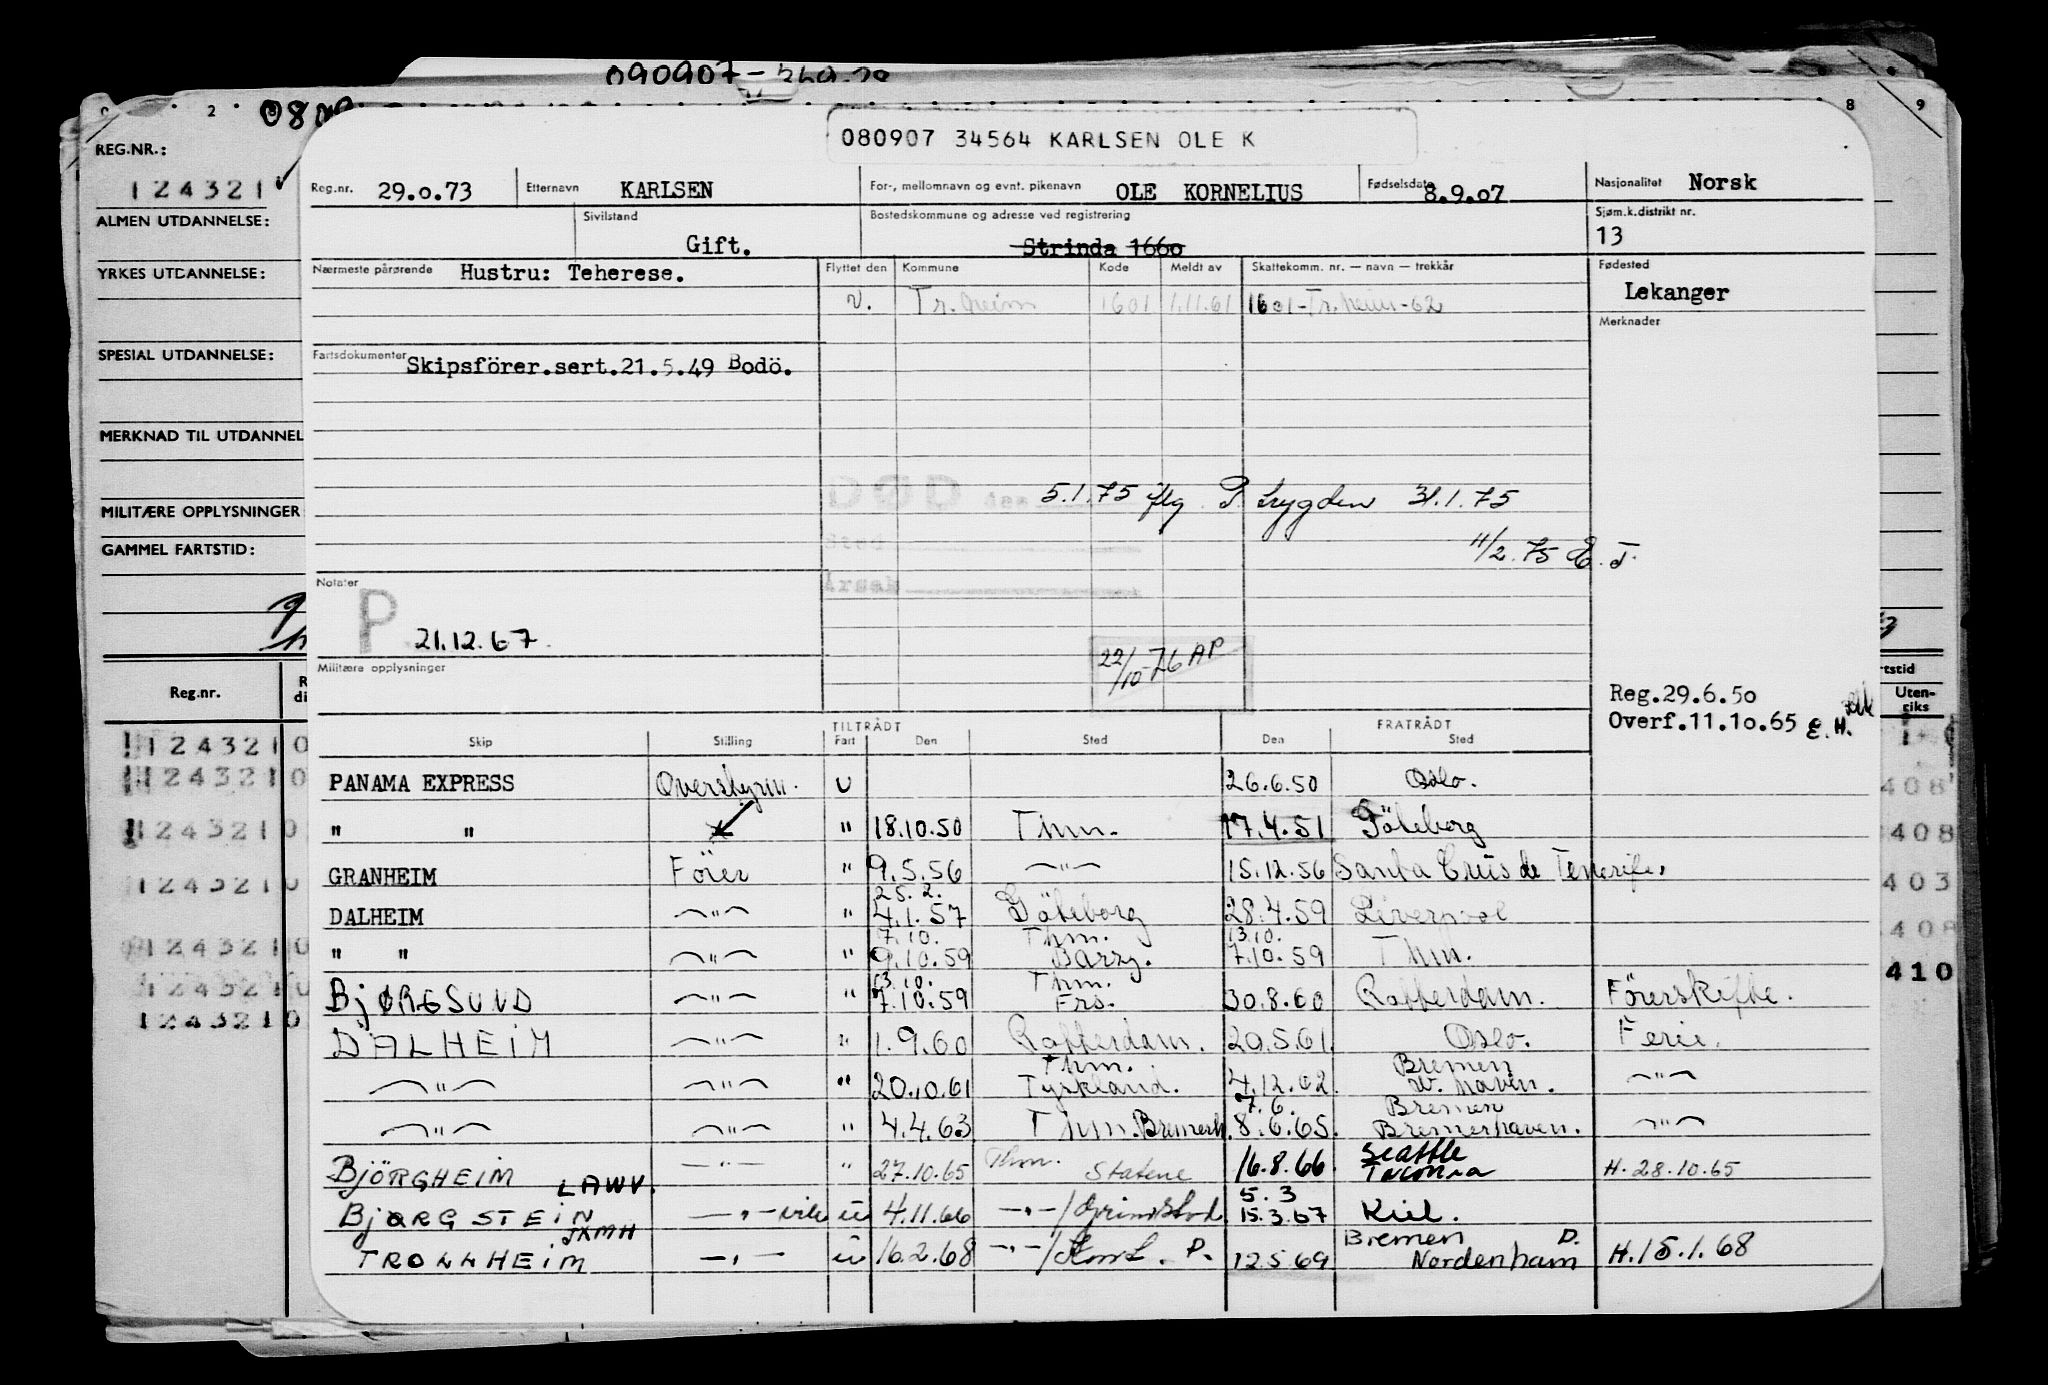 090907-
080
0 2 8 9
080907 34564 KARLSEN OLE K
REG.NR.:
124321
Reg.nr. 29.o.73 Etternavn KARLSEN For-, mellomnavn og evnt. pikenavn OLE KORNELIUS Fødselsdato 8.9.07 Nasjonalitet Norsk
ALMEN UTDANNELSE:
Sivilstand Gift. Bostedskommune og adresse ved registrering Strinda 1660 Sjøm.k.distrikt nr. 13
YRKES UTDANNELSE:
Nærmeste pårørende Hustru: Teherese. Flyttet den Kommune Kode Meldt av Skattekomm. nr. — navn — trekkår Fødested
v. Tr.heim 1601 1.11.61 1601-Tr.heim-62 Lekanger
Merknader
SPESIAL UTDANNELSE:
Fartsdokumenter Skipsförer.sert.21.5.49 Bodö.
MERKNAD TIL UTDANNEL
DØD 5.1.75 iflg. P. trygden 31.1.75
MILITÆRE OPPLYSNINGER
GAMMEL FARTSTID:
Sted
11/2.75 E.T.
Notater
Årsak
P 21.12.67.
22/10-76 AP
Militære opplysninger
Reg.nr.
Reg.29.6.5o
Overf.11.1o.65 E.H.
rtstid
Uten-
riks
TILTRÅDT FRATRÅDT
Skip Stilling Fart Den Sted Den Sted
PANAMA EXPRESS Overstyrm. U 26.6.50 Oslo.
" " " 18.10.50 Thm. 17.4.51 Göteborg
GRANHEIM Förer " 9.5.56 —"— 15.12.56 Santa Cruis de Tenerife.
25.2.
DALHEIM —"— " 4.1.57 Göteborg 28.4.59 Liverpool
7.10. Thm. 13.10.
" " —"— " 9.10.59 Barry. 7.10.59 Thm.
13.10. Thm.
BjØRGSUND —"— " 7.10.59 Frs. 30.8.60 Rotterdam. Förerskifte.
DALHEIM —"— " 1.9.60 Rotterdam. 20.5.61. Oslo. Ferie.
Thm. Bremen
—"— —"— " 20.10.61 Tyskland. 4.12.62 W. haven. —"—
7.6. Bremen
—"— —"— " 4.4.63 Thm. Bremerh. 8.6.65. Bremerhaven. —"—
Seattle
BjÖRGHEIM —"— " 27.10.65 Thm. Statene 16.8.66 Tacoma H. 28.10.65
LAWV. 5.3
BjØRGSTEIN —"— u 4.11.66 —"—/Grimstad 15.3.67 Kiel.
JXMH Bremen D.
TROLLHEIM —"— u 16.2.68 —"— P. 12.5.69 Nordenham H.15.1.68
1243210
1243210
1243210
1243210
1243210
1243210
1243210
408
408
403
408
410